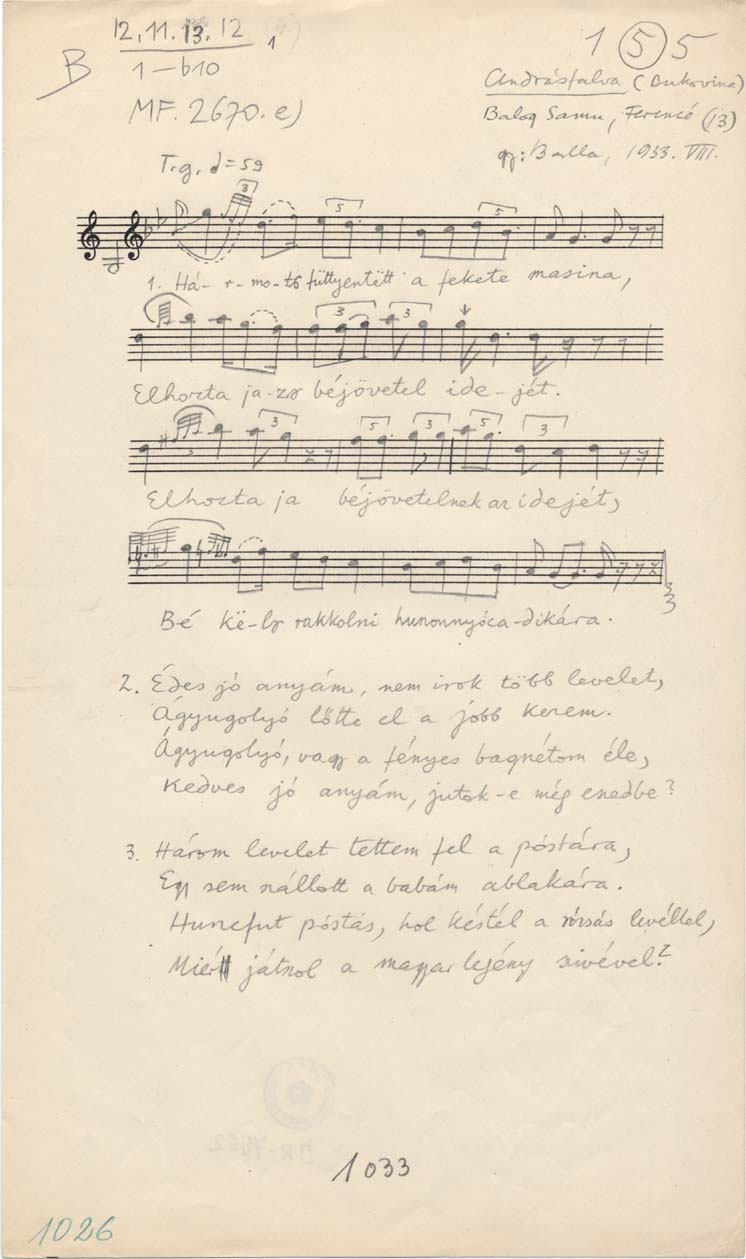 12, 11. 13. 12 1
1 (5) 5
B
1—b10
Andrásfalva (Bukovina)
MF. 2670. e)
Balog Samu, Ferencé (13)
gy: Balla, 1933. VIII.
T. g. ♩=59
3
5
5
1. Há- r- mo-ts füttyentëtt a fekete masina,
3
3
Elhozta ja-zs béjövetel ide-jét.
3
5
3
5
3
Elhozta ja béjövetelnek az idejét,
Bé kë-ly rakkolni huszonnyóca-dikára.
2. Édes jó anyám, nem irok több levelet,
Ágyugolyó lőtte el a jobb kezem.
Ágyugolyó, vagy a fényes bagnétom éle,
Kedves jó anyám, jutok-e még eszedbe?
3. Három levelet tettem fel a póstára,
Egy sem szállott a babám ablakára.
Huncfut póstás, hol késtél a rózsás levéllel,
Miért játszol a magyar legény szivével?
1033
1026